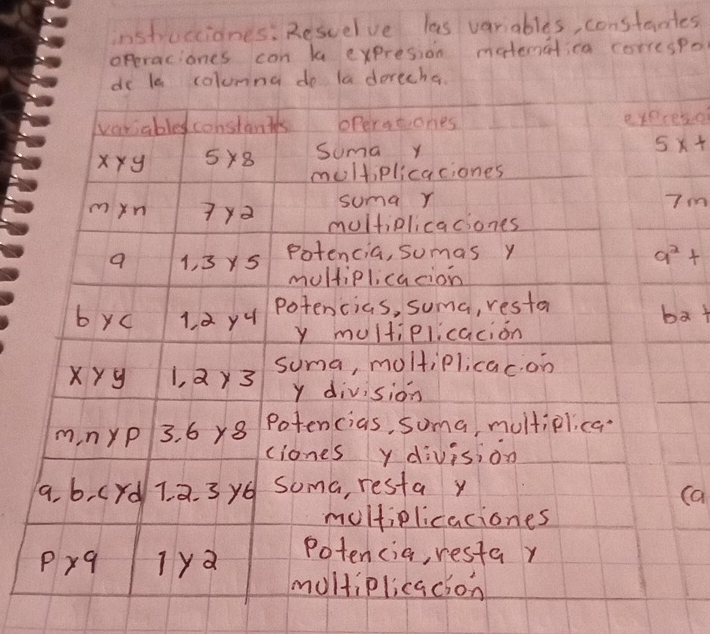 instrucciones: Resuelve las variables, constantes
operaciones con la expresión matematica correspo
de la columna de la derecha.
variables constantes operaciones expresio
x y y 5 y 8 Suma y 5x+
multiplicaciones
m y n 7 y 2 suma y 7m
multiplicaciones
a 1,3 y 5 Potencia, sumas y a²+
multiplicación
b y c 1,2 y 4 Potencias, suma, resta b2+
y multiplicación
x y y 1,2 y 3 suma, moltiplicacion
y división
m,n y p 3,6 y 8 Potencias, suma, multiplica-
ciones y división
a,b,c y d 1,2,3 y 6 Suma, resta y (a
moltiplicaciones
P y q 1 y 2 Potencia, resta y
moltiplicación